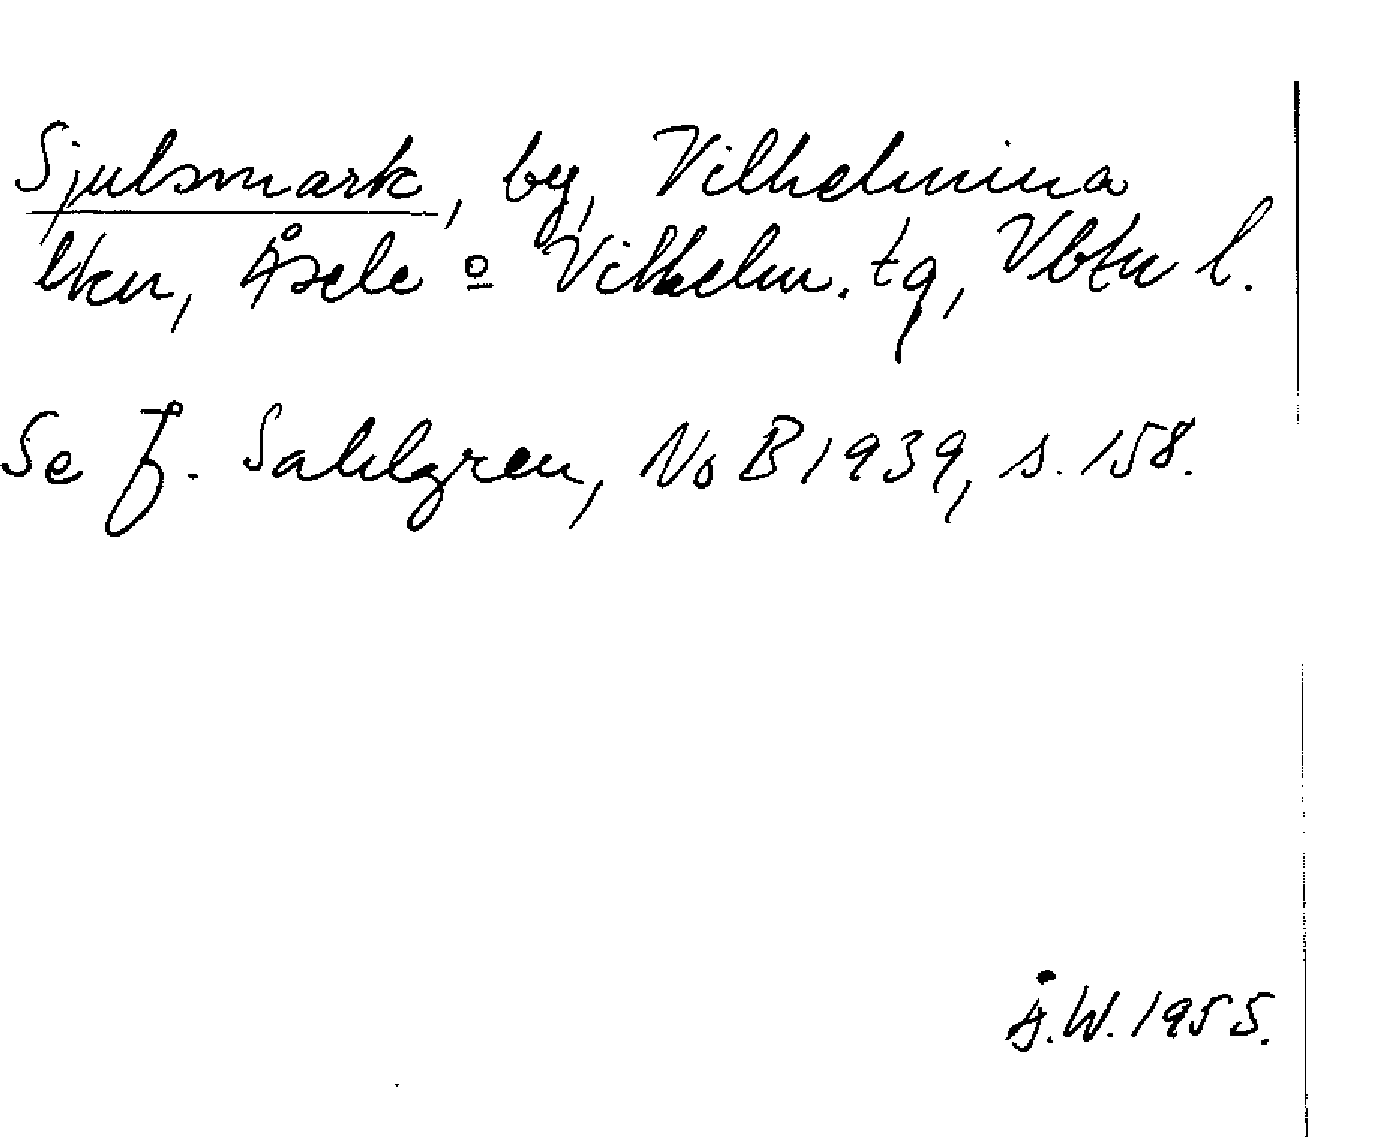 Sjulsmark, by, Vilhelmina
lkn, Åsele o Vilhelm. tg, Vbtn l.
Se J. Sahlgren, NoB 1939, s. 158.
Å.W. 1955.